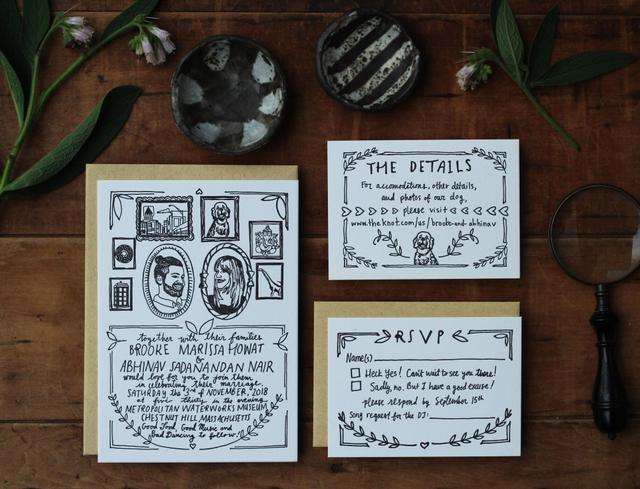 together with their families
BROOKE MARISSA HOWAT
&
ABHINAV SADANANDAN NAIR
would love for you to join them
in celebrating their marriage
SATURDAY the 3rd of NOVEMBER, 2018
at five thirty in the evening
METROPOLITAN WATERWORKS MUSEUM
CHESTNUT HILL, MASSACHUSETTS
Good Food, Good Music and
Bad Dancing to follow!
THE DETAILS
For accomodations, other details,
and photos of our dog,
please visit
www.theknot.com/us/brooke-and-abhinav
RSVP
Name(s)
Heck Yes! Can't wait to see you there!
Sadly, no. But I have a good excuse!
please respond by September 15th
Song request for the DJ: